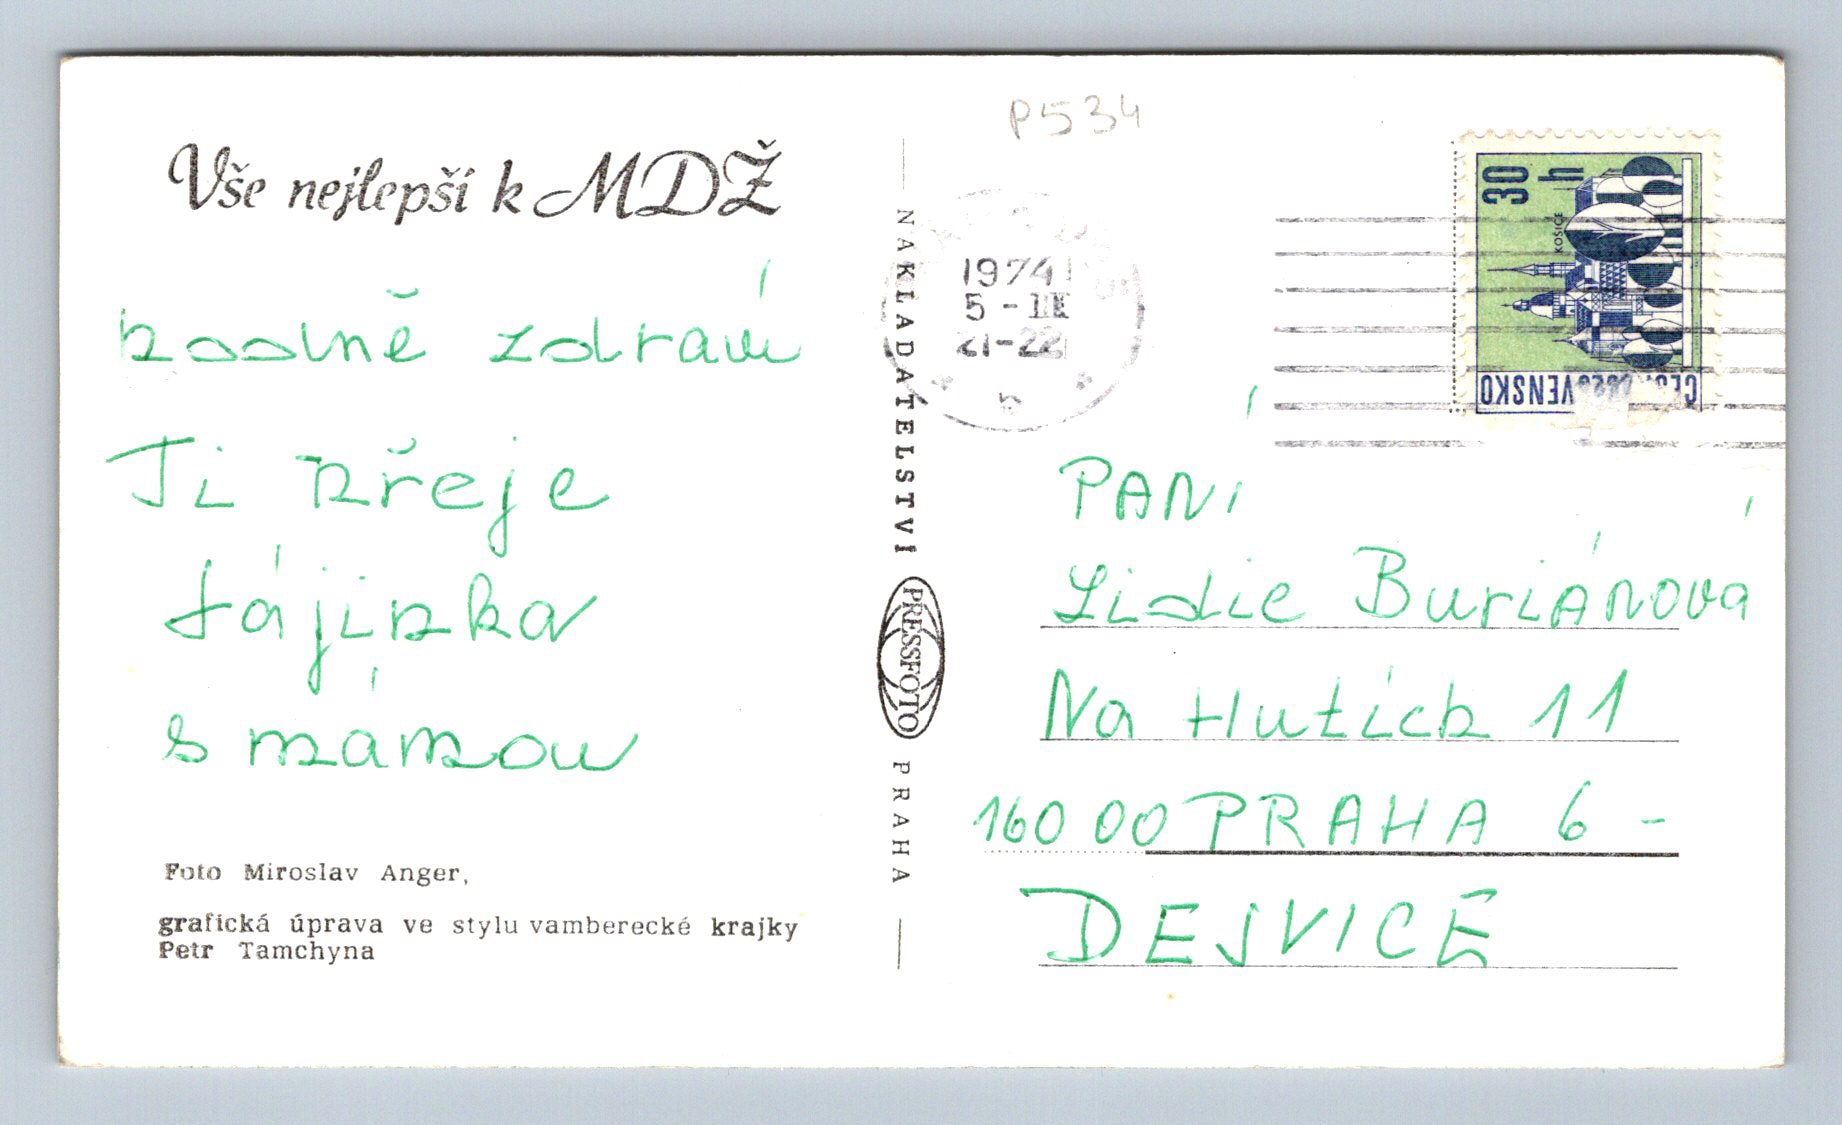 Vše nejlepší k MDŽ
hodně zdraví
Ti přeje
Tájinka
s mámou
Foto Miroslav Anger,
grafická úprava ve stylu vamberecké krajky
Petr Tamchyna
NAKLADATELSTVÍ PRESSFOTO PRAHA
P534
1974
5-III
21-22
30 h
KOŠICE
PANÍ
Lidie Buriánová
Na Hutích 11
160 00 PRAHA 6 -
DEJVICE